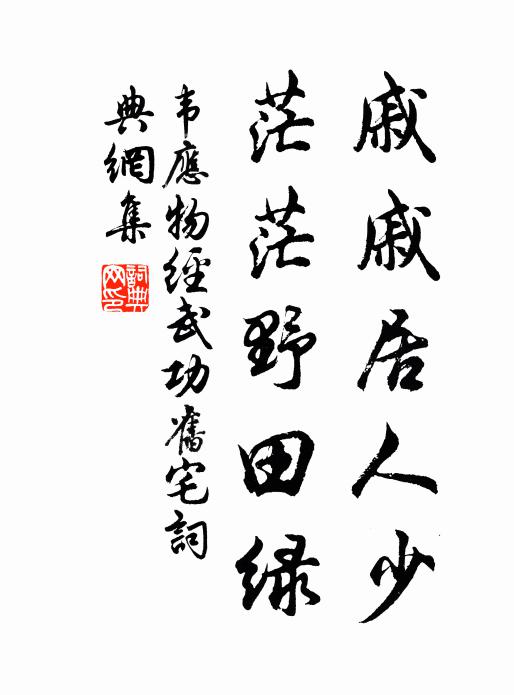 戚戚居人少
茫茫野田绿
韦應物經武功舊宅詞
典網集
詞典网印